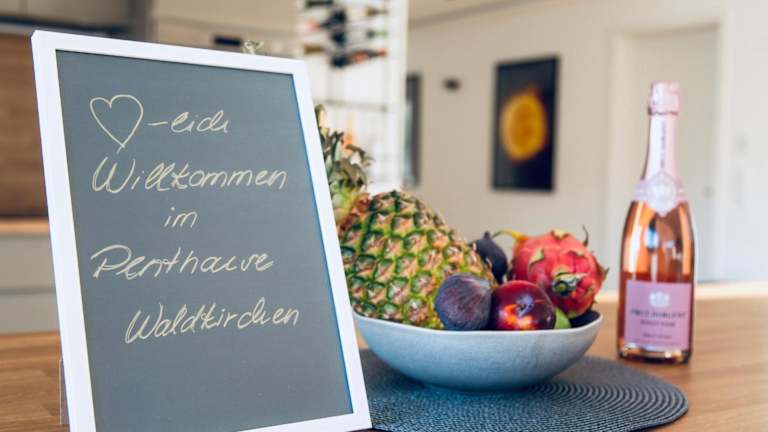 ♡-lich
Willkommen
im
Penthause
Waldkirchen